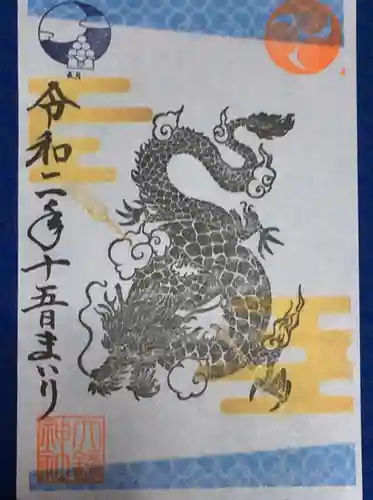 令和二年十五日まいり
神社